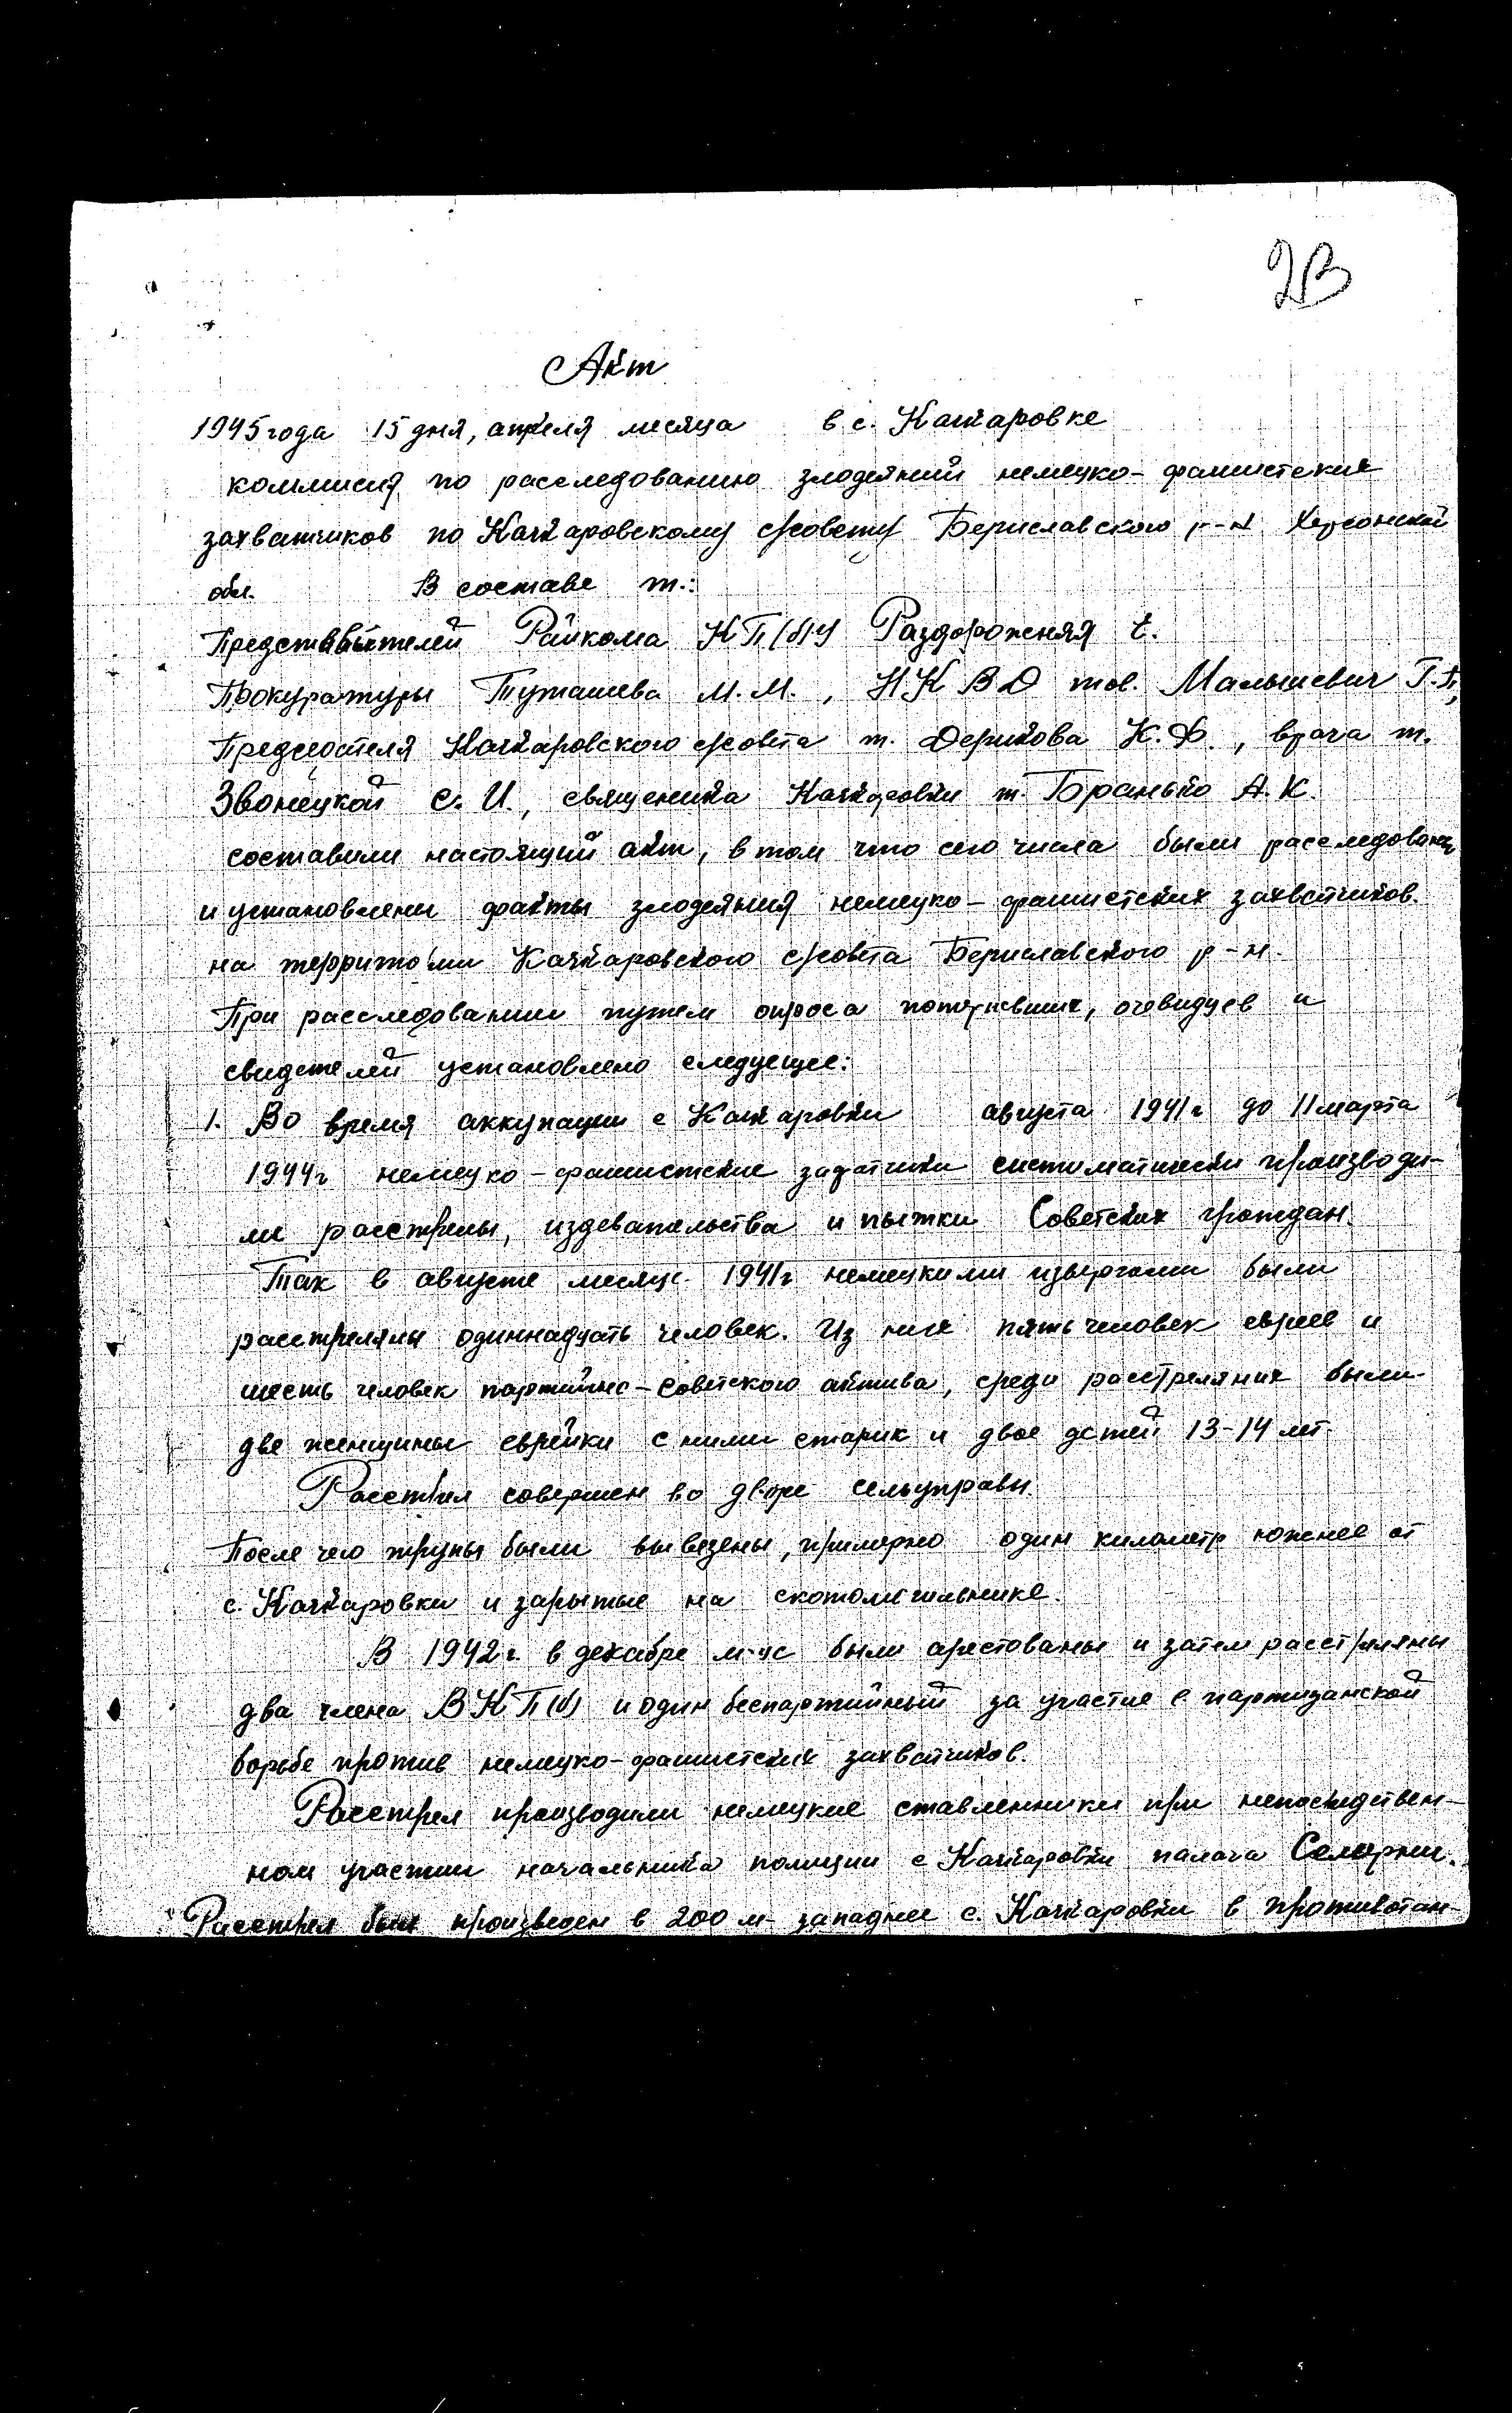 23
Акт
1945 года 15 дня, апреля месяца в с. Качкаровке
комиссия по расследованию злодеяний немецко-фашистских
захватчиков по Качкаровскому с/совету Бериславского р-н Херсонской
обл. В составе т.:
Представителей Райкома КП(б)У Раздорожняя Е.
Прокуратуры Туташева М.М., НКВД тов. Малышевич Г.П.,
Председателя Качкаровского с/совета т. Дерикова К.Ф., врача т.
Звонецкой С.И., священика Качкаровки т. Боранько А.К.
составили настоящий акт, в том что сего числа были расследованы
и установлены факты злодеяния немецко-фашистских захватчиков.
на территории Качкаровского с/совета Бериславского р-н.
При расследовании путем опроса потерпевших, очевидцев и
свидетелей установлено следующее:
1. Во время аккупации с Качкаровки августа 1941г до 11 марта
1944г немецко-фашистские систематически производи-
ли расстрелы, издевательства и пытки Советских граждан.
Так в августе месяце 1941г немецкими извергами были
расстреляны одиннадцать человек. Из них пять человек евреев и
шесть человек партийно-советского актива, среди расстреляних были
две женщины еврейки с ними старик и двое детей 13-14 лет.
Расстрел совершен во дворе сельуправы.
После чего трупы были вывезены, примерно один километр южнее от
с. Качкаровки и зарытые на скотомогильнике.
В 1942г. в декабре м-це были арестованы и затем расстреляны
два члена ВКП(б) и один беспартийный за участие в партизанской
борьбе против немецко-фашистских захватчиков.
Расстрел производили немецкие ставленники при непосредствен-
ном участии начальника полиции с Качкаровки палача
Расстрел был произведен в 200 м западнее с. Качкаровки в противотан-